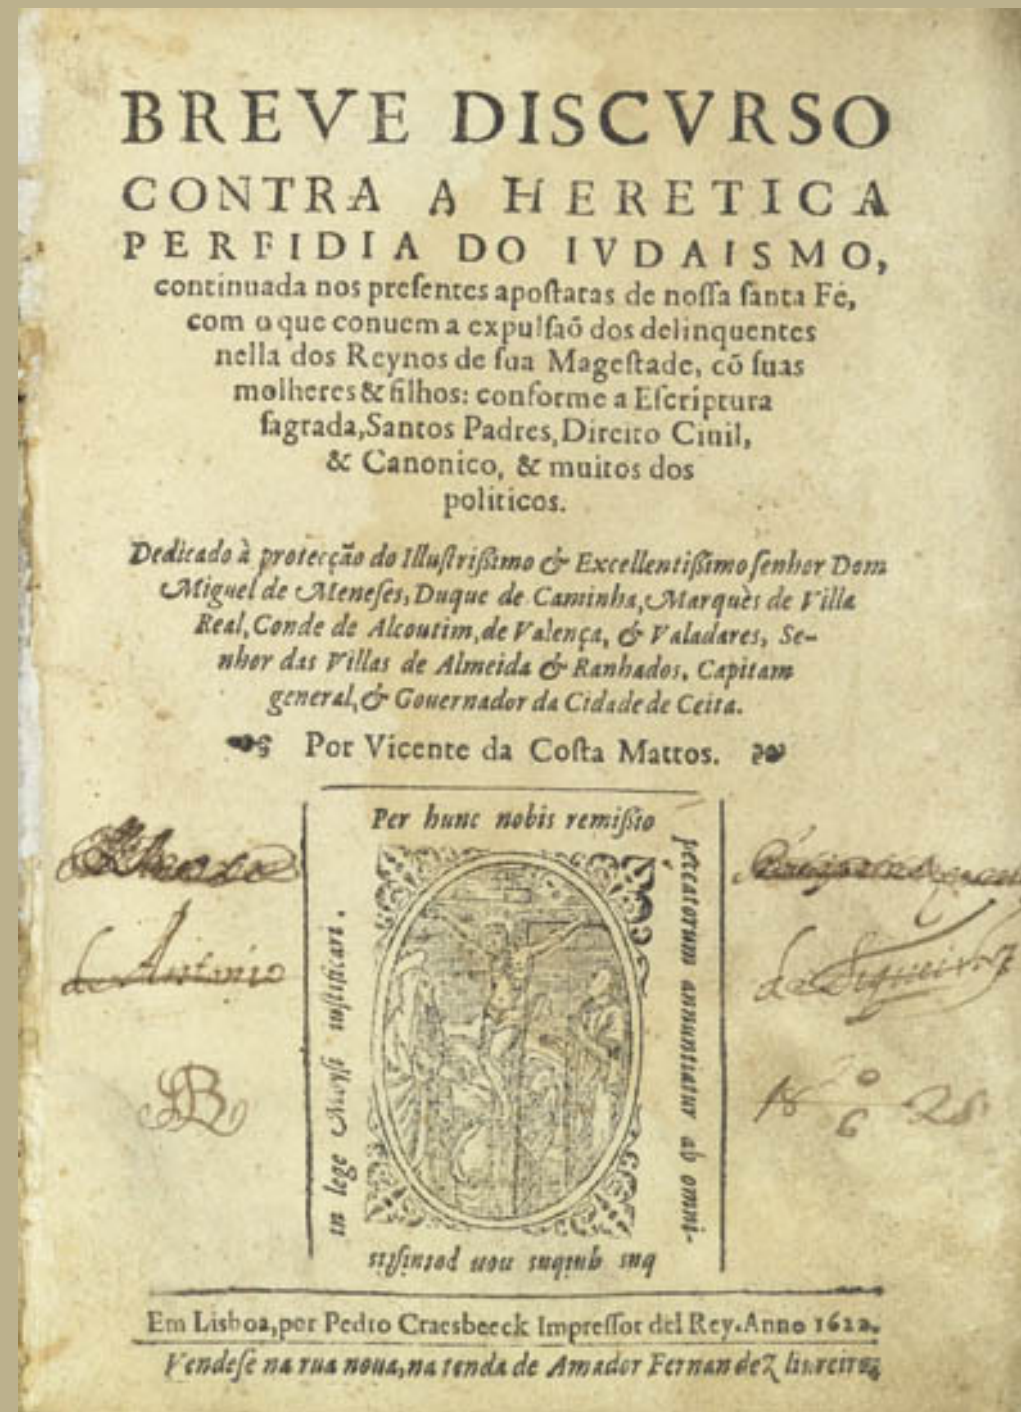 BREVE DISCVRSO
CONTRA A HERETICA
PERFIDIA DO IVDAISMO,
continuada nos preſentes apoſtatas de noſſa ſanta Fé,
com o que conuem a expulſaõ dos delinquentes
nella dos Reynos de ſua Mageſtade, cõ ſuas
molheres & filhos: conforme a Eſcriptura
ſagrada, Santos Padres, Direito Ciuil,
& Canonico, & muitos dos
politicos.
Dedicado à protecção do Illuſtriſsimo & Excellentiſsimo ſenhor Dom
Miguel de Meneſes, Duque de Caminha, Marquès de Villa
Real, Conde de Alcoutim, de Valença, & Valadares, Se-
nhor das Villas de Almeida & Ranhados, Capitam
general, & Gouernador da Cidade de Ceita.
Por Vicente da Coſta Mattos.
Per hunc nobis remiſsio
peccatorum annuntiatur ab omni-
bus quibus non potuiſtis
in lege Moyſi iuſtificari.
de Antonio
de Siqueira
Em Lisboa, por Pedro Craesbeeck Impreſſor del Rey. Anno 1622.
Vendeſe na rua noua, na tenda de Amador Fernandez liureiro